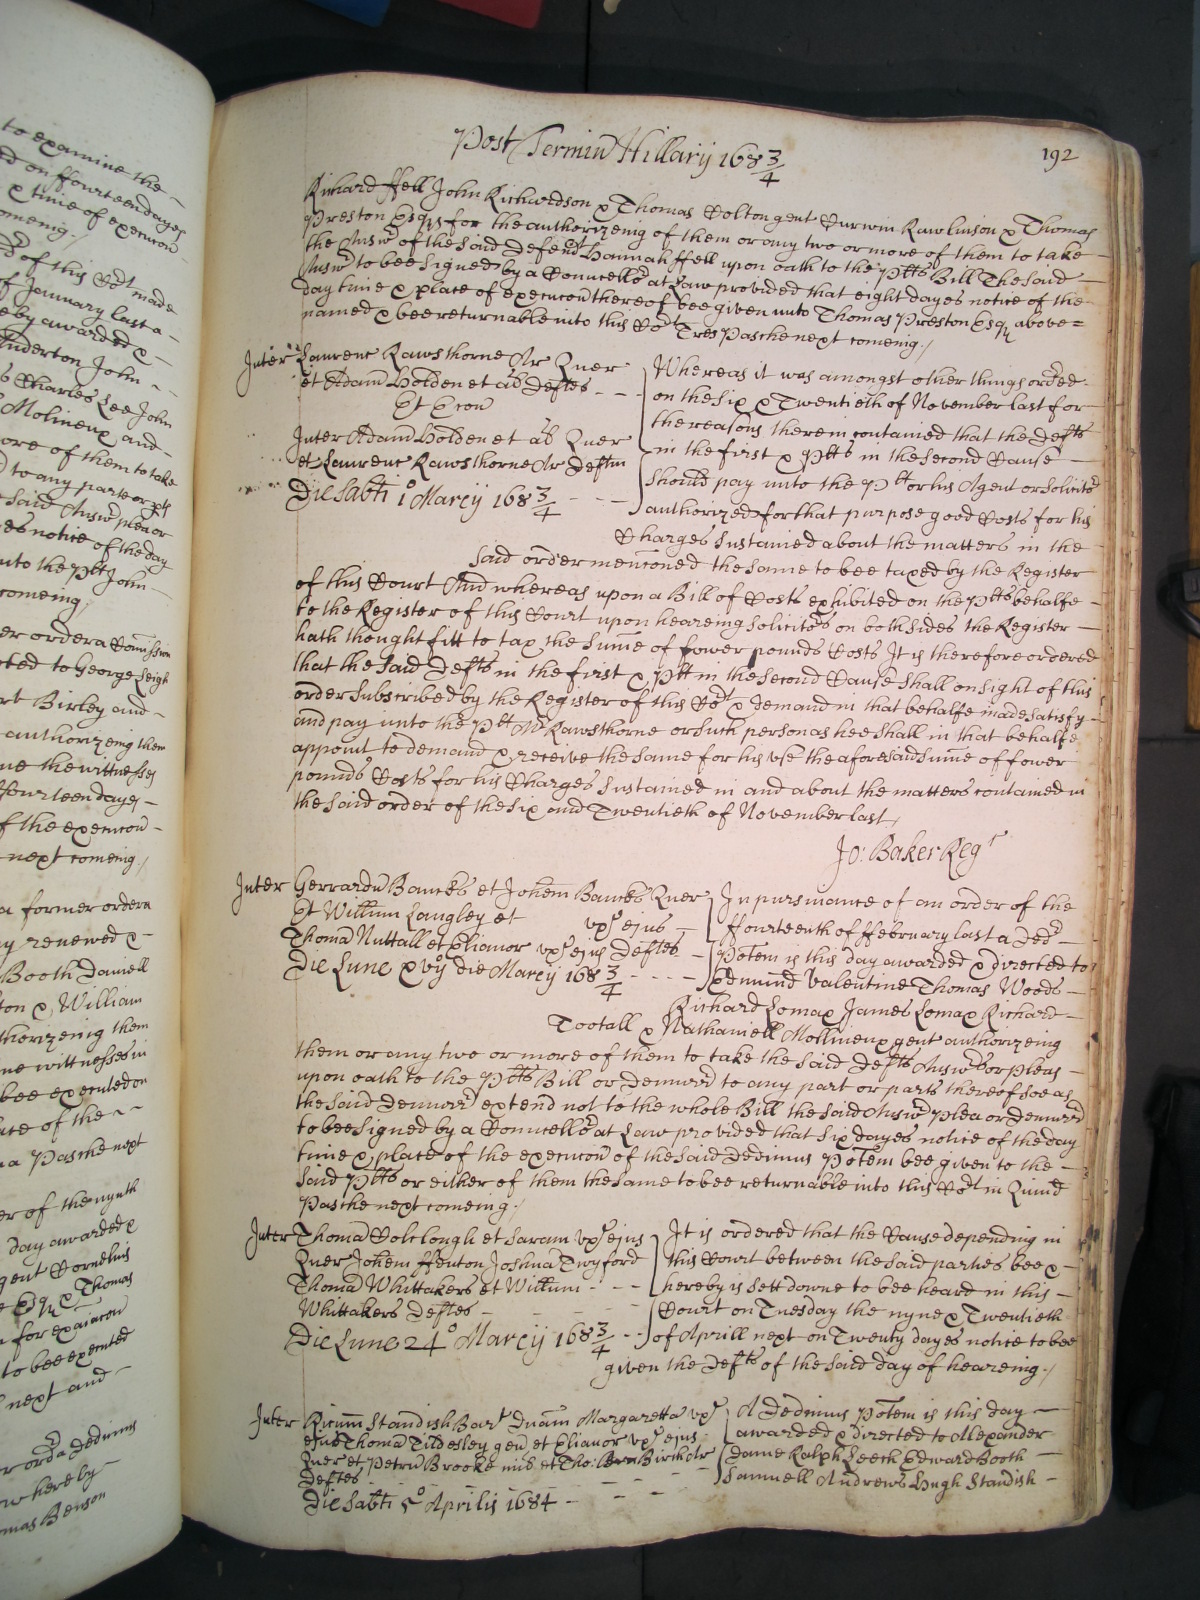 to examine the
on ffourteen dayes
& time of execucon
comeing ./
of this Cort made
of January last a
eby awarded &
Anderton John
Charles Lee John
Molineux and
ore of them to take
to any parte or pts
said Answr plea or
es notice of the day
unto the Plt John
comeing
er order a Comission
cted to George Leigh
rt Birley and
authorizeing them
ne the wittnesses
fourteen dayes
f the execucon
next comeing ./
a former order a
ly renewed &
Booth Daniell
ton & William
thorizeing them
ne wittnesses in
bee executed on
ace of the
a Pasche next
er of the nynth
day awarded &
gent Cornelius
Esqr & Thomas
for exaiacon
to bee executed
next and
r ordr a dedimus
hereby
mas Benson
Post Termin Hillarij 168¾
192
Richard ffell John Richardson & Thomas Bolton gent Curwin Rawlinson & Thomas
Preston Esqrs for the authorizeing of them or any two or more of them to take
the Answr of the said Defendt Hannah ffell upon oath to the Plts Bill The said
Answr to bee signed by a Councellor at Law provided that eight dayes notice of the
day time & place of execucon thereof bee given unto Thomas Preston Esqr above=
named & bee returnable into this Cort Tres Pasche next comeing ./
Inter Laurenc Rawsthorne Ar Quer
et Adam Holden et als Deftes
Et Econ
Inter Adam Holden et als Quer
et Laurenc Rawsthorne Ar Deftm
Die Sabti 1o Marcij 168¾
Whereas it was amongst other things ordred
on the six & Twentieth of November last for
the reasons therein contained that the Defts
in the first & Plts in the second Cause
should pay unto the Plt or his Agent or solicitr
authorized for that purpose good Costs for his
Charges sustained about the matters in the
said order menconed the same to bee taxed by the Register
of this Court And whereas upon a Bill of Costs exhibited on the Plts behalfe
to the Register of this Court upon heareing solicitors on both sides the Register
hath thought fitt to tax the summe of fower pounds Costs It is therefore ordered
that the said Defts in the first & Plt in the second Cause shall on sight of this
order subscribed by the Register of this Cort & demand in that behalfe made satisfy
and pay unto the Plt Mr Rawsthorne or such person as hee shall in that behalfe
appoint to demand & receive the same for his use the aforesaid summe of fower
pounds Costs for his Charges sustained in and about the matters contained in
the said order of the six and Twentieth of November last /
Jo: Baker Regr
Inter Gerrardu Bancks et Johem Bancks Quer
Et Willum Langley et uxr ejus
Thoma Nuttall et Elianor uxr ejus Deftes
Die Lune xvijo die Marcij 168¾
In pursuance of an order of the
ffourteenth of ffebruary last a Ded
Potem is this day awarded & directed to
Edmund Valentine Thomas Woods
Richard Lomax James Lomax Richard
Tootall & Nathaniell Mollineux gent authorizeing
them or any two or more of them to take the said Defts Answr or Pleas
upon oath to the Plts Bill or Demurr to any part or parts thereof soe as
the said Demurr extend not to the whole Bill the said Answr Plea or Demurr
to bee signed by a Councellor at Law provided that six dayes notice of the day
time & place of the execucon of the said Dedimus Potem bee given to the
said Plts or either of them the same to bee returnable into this Cort in Quind
Pasche next comeing ./
Inter Thoma Colclough et Saram uxr ejus
Quer Johem ffenton Joshua Twyford
Thoma Whittakers et Willum
Whittakers Deftes
Die Lune 24o Marcij 168¾
It is ordered that the Cause depending in
this Court between the said parties bee &
hereby is sett downe to bee heard in this
Court on Tuesday the nyne & Twentieth
of Aprill next on Twenty dayes notice to bee
given the Defts of the said day of heareing ./
Inter Ricum Standish Bart Dnam Margaretta uxr
ejus Thoma Tildesley gen et Elianor uxr ejus
Quer et Petru Brooke mil et Tho: Birch Ar
Deftes
Die Sabti 5o Aprilis 1684
A Dedimus Potem is this day
awarded & directed to Alexander
Dame Ralph Leech Edward Booth
Samuell Andrews Hugh Standish